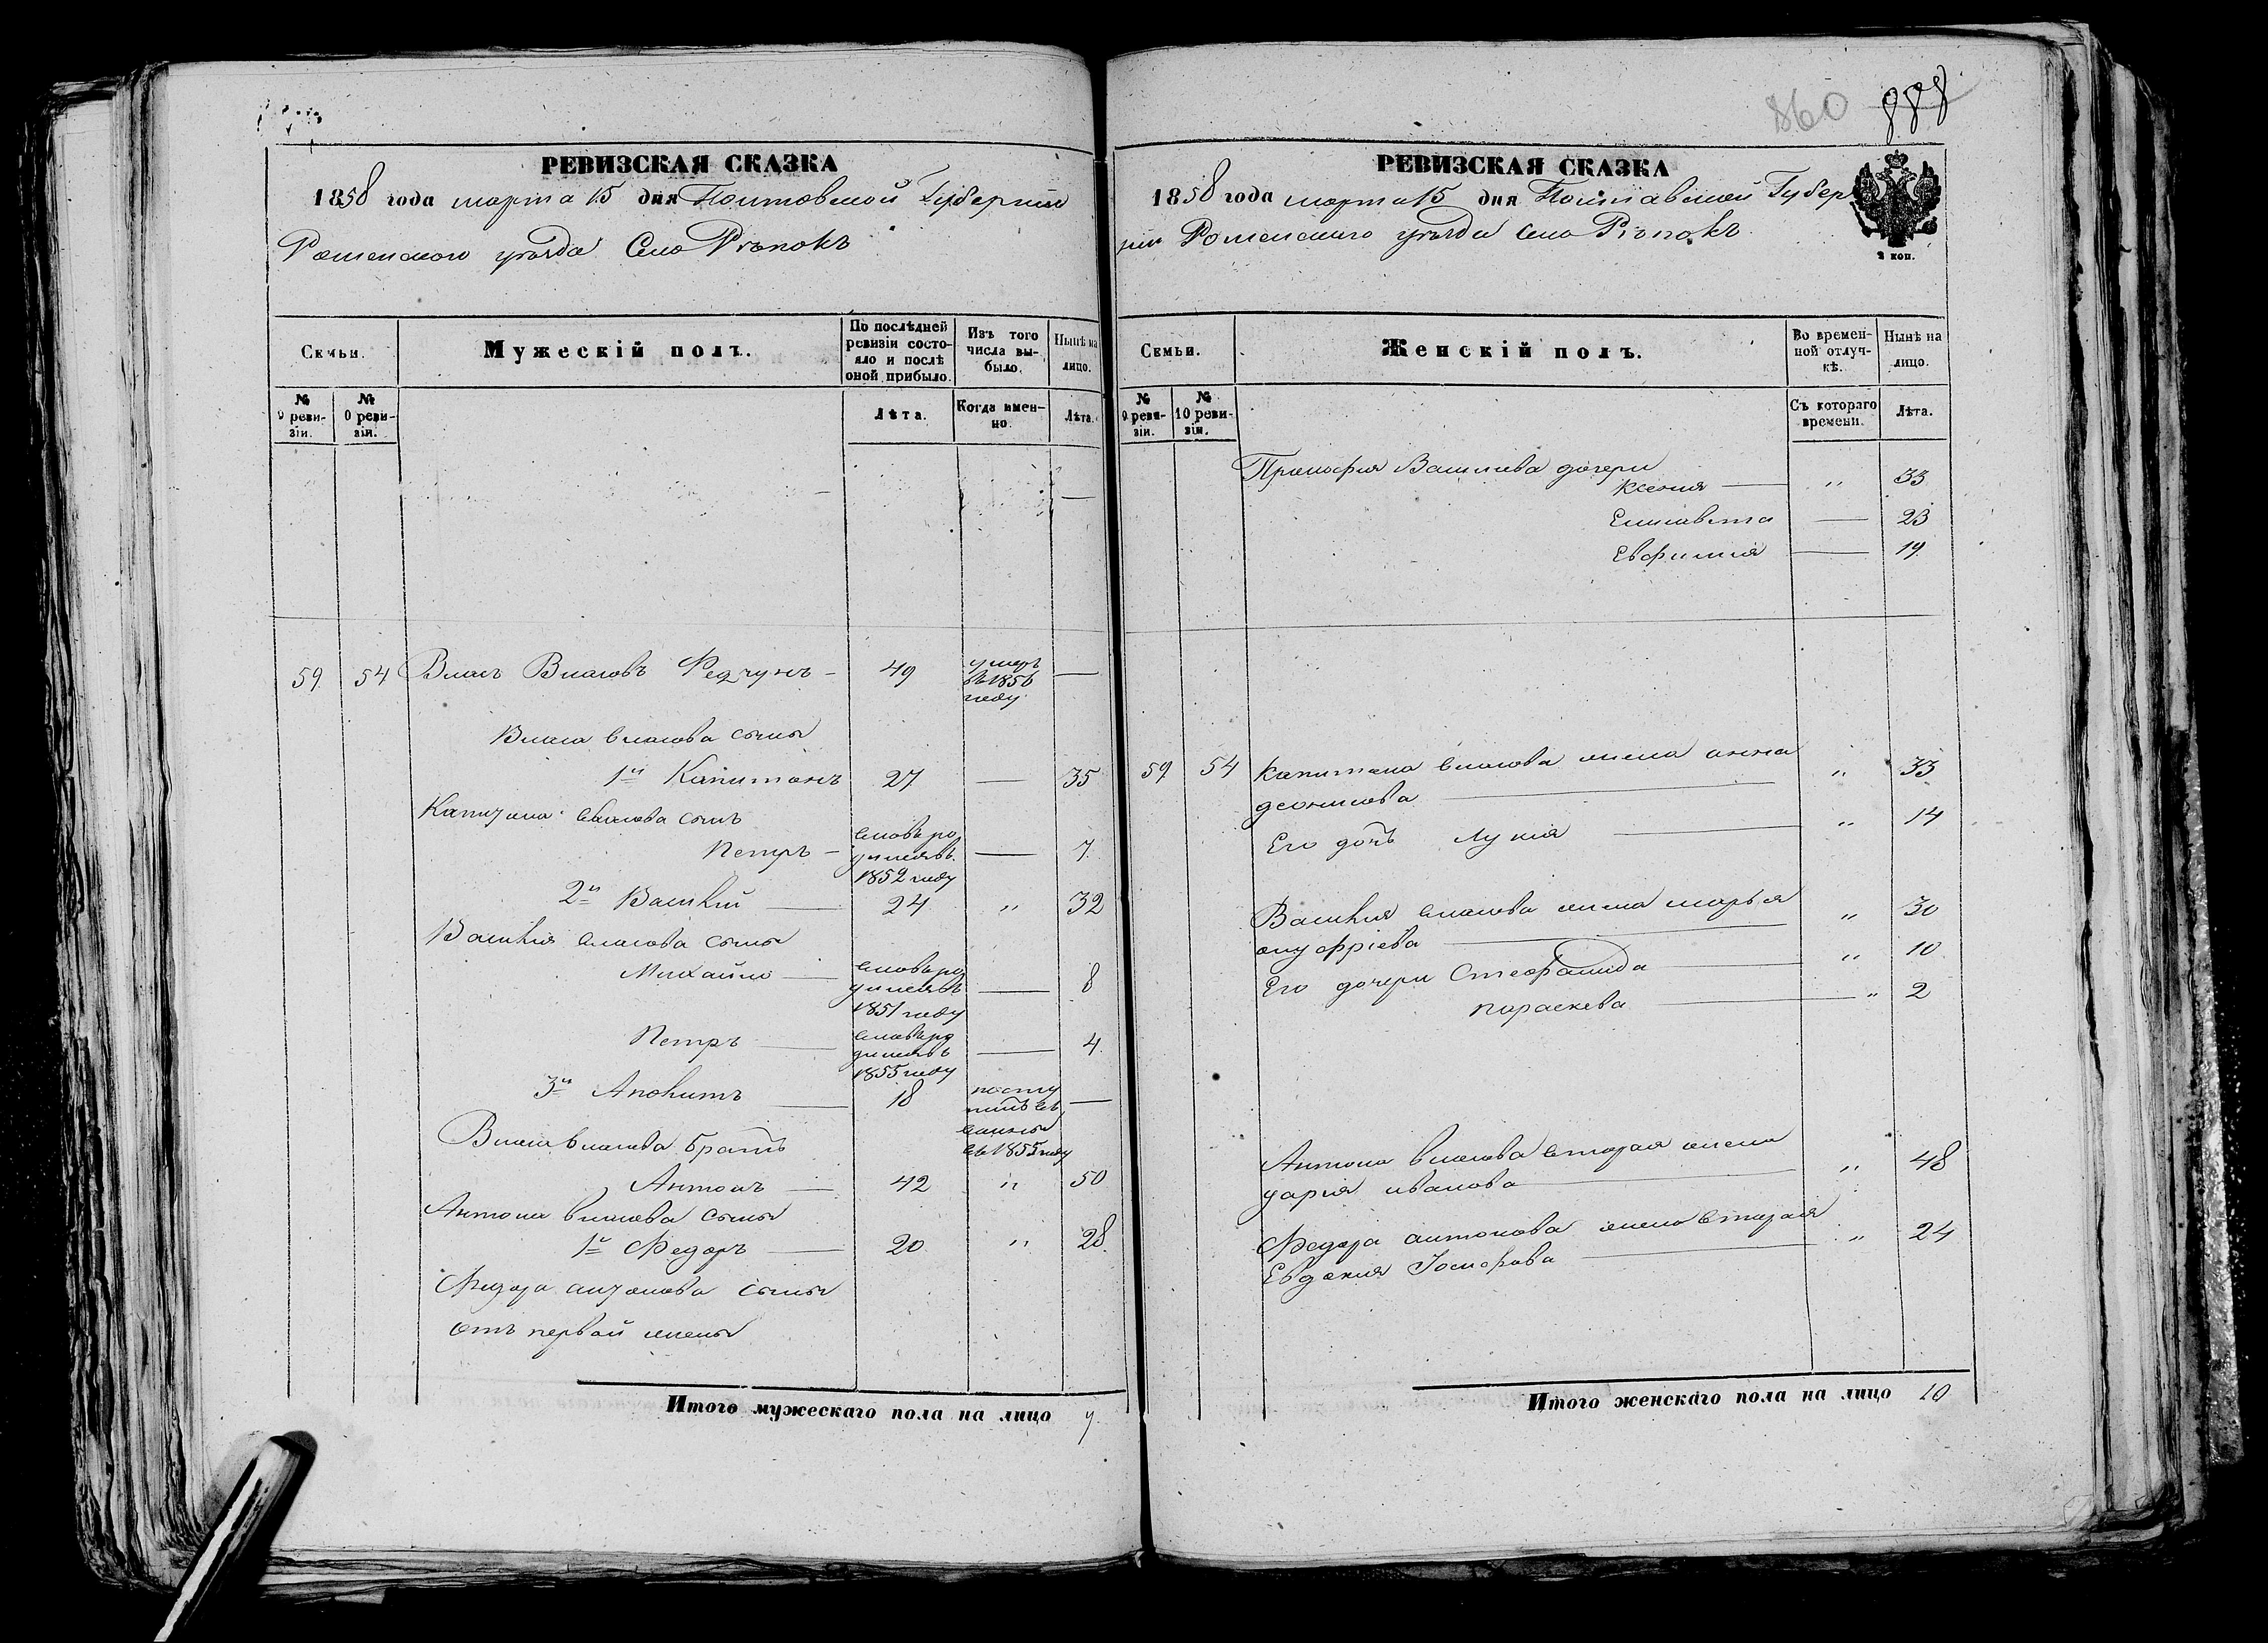 860 888
РЕВИЗСКАЯ СКАЗКА
1858 года марта 15 дня Полтавской Губернии
Роменского уѣзда Село Рѣпокъ
Семьи.
Мужескій полъ.
По послѣдней ревизіи состояло и послѣ оной прибыло.
Изъ того числа выбыло.
Нынѣ на лицо.
№ 9 ревизіи.
№ 0 ревизіи.
Лѣта.
Когда именно.
Лѣта.
59 54 Власъ Власовъ Федчунъ - 49 умеръ въ 1856 году —
Власа власова сыны
1й Капитонъ 27 — 35
Капитона власова сынъ
Петръ - вновь родился въ 1852 году — 7
2й Василій — 24 " 32
Василия власова сыны
Михайло — вновь родился въ 1851 году — 8
Петръ — вновь родился въ 1855 году — 4
3й — 18 въ 1855 году —
Власа власова братъ
Антонъ — 42 " 50
Антона власова сыны
1й Федоръ — 20 " 28
Федора антонова сыны
отъ первой жены
Итого мужескаго пола на лицо 7
РЕВИЗСКАЯ СКАЗКА
1858 года марта 15 дня Полтавской Губер
нии Роменского уѣзда Село Рѣпокъ
2 коп.
Семьи.
Женскій полъ.
Во временной отлучкѣ.
Нынѣ на лицо.
№ 9 ревизіи.
№ 10 ревизіи.
Съ котораго времени.
Лѣта.
Прокофия Василиева дочери
Ксения — " 33
Елисавета — 23
Евфимия — 19
59 54 Капитона власова жена анна
деонисова — " 33
Его дочь Лукия — " 14
Василия власова жена марья
онуфріева — " 30
Его дочери Стефанида — " 10
параскева — " 2
Антона власова вторая жена
дария иванова — " 48
Федора антонова жена вторая
Евдокия Іосифова — " 24
Итого женскаго пола на лицо 10